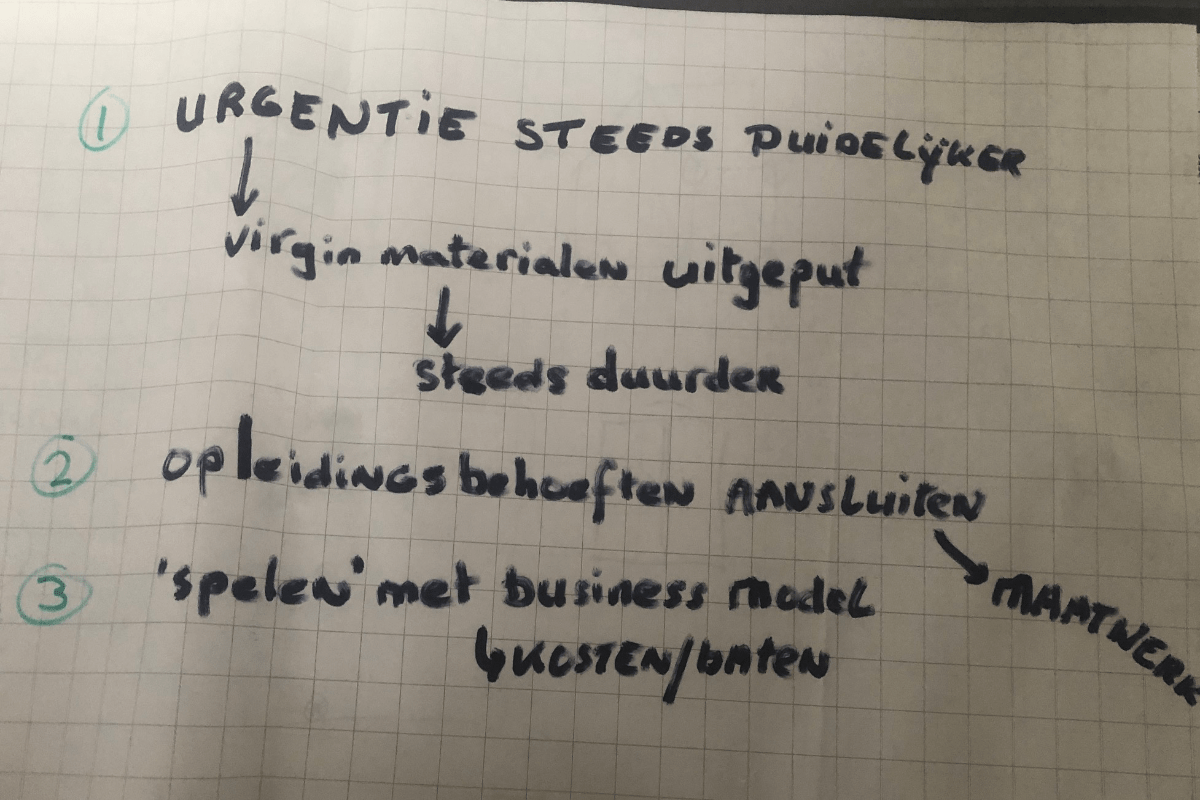 ① URGENTIE STEEDS DUIDELIJKER
↓
virgin materialen uitgeput
↓
steeds duurder
② opleidingsbehoeften AANSLUITEN
→ MAATWERK
③ 'spelen' met business model
↳ KOSTEN/BATEN